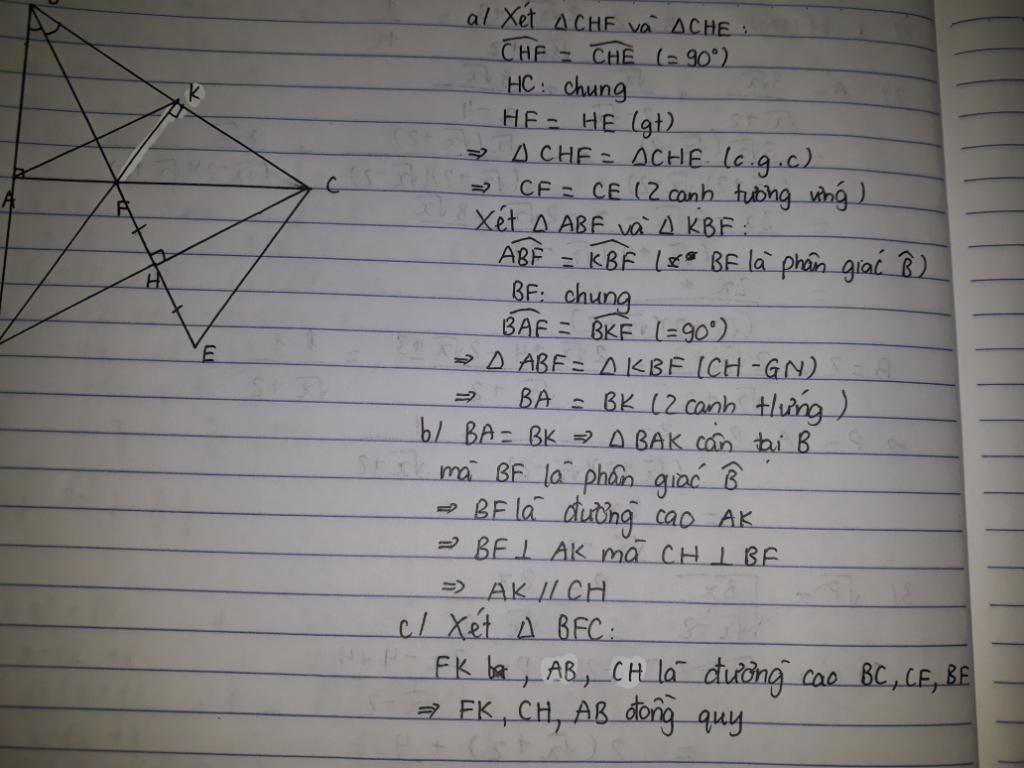 a/ Xét ΔCHF và ΔCHE:
CHF = CHE (=90°)
HC: chung
HF = HE (gt)
⇒ Δ CHF = ΔCHE (c.g.c)
⇒ CF = CE (2 cạnh tương ứng)
Xét Δ ABF và Δ KBF:
ABF = KBF ( BF là phân giác B̂)
BF: chung
BAF = BKF (=90°)
⇒ Δ ABF = Δ KBF (CH-GN)
⇒ BA = BK (2 cạnh t/ứng)
b/ BA = BK ⇒ Δ BAK cân tại B
mà BF là phân giác B̂
⇒ BF là đường cao AK
⇒ BF ⊥ AK mà CH ⊥ BF
⇒ AK // CH
c/ Xét Δ BFC:
FK , AB, CH là đường cao BC, CF, BF
⇒ FK, CH, AB đồng quy
K
A
C
F
H
E